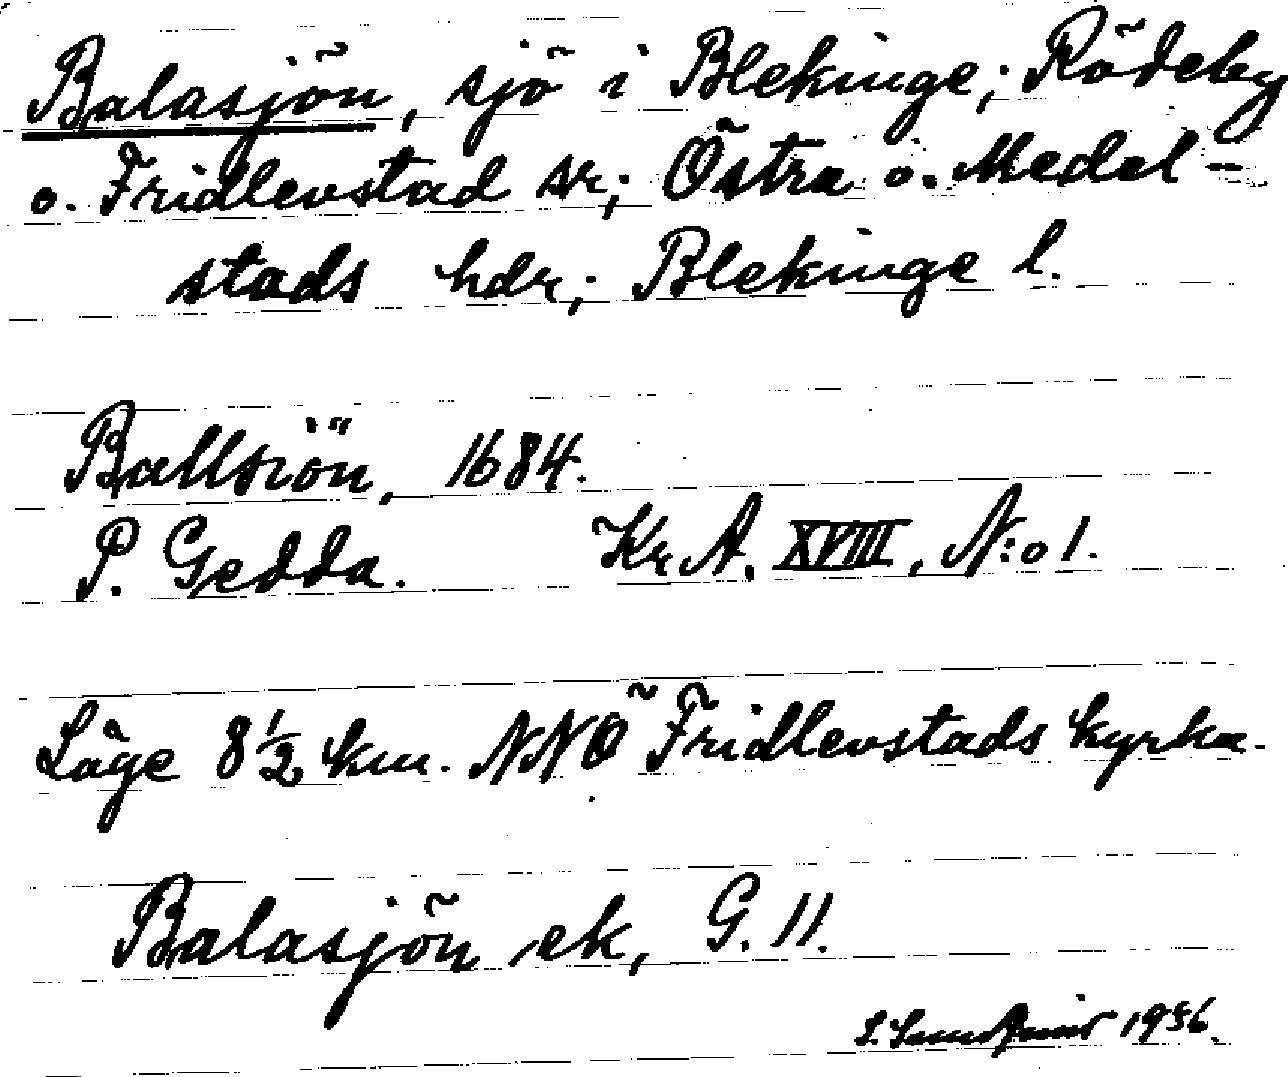 Balasjön, sjö i Blekinge; Rödeby
o. Fridlevstad snr; Östra o. Medel-
stads hdr; Blekinge l.
Ballsiön, 1684.
P. Gedda. Kr. A. XVIII, N:o 1.
Läge 8 1/2 km. NNÖ Fridlevstads kyrka.
Balasjön ek, G. 11.
1956.